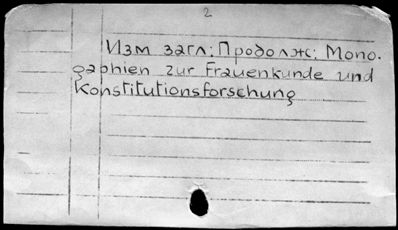 2
Изм загл: Продолж: Mono.
gaphien zur Frauenkunde und
Konstitutionsforschung